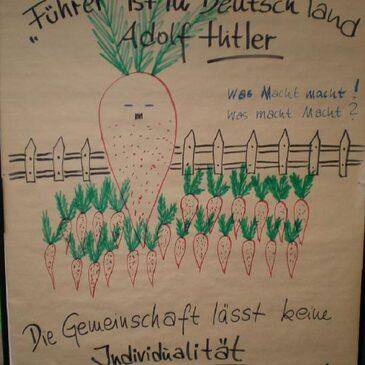 "Führer ist in Deutschland
Adolf Hitler
Was Macht macht!
Was macht Macht?
Die Gemeinschaft lässt keine
Individualität